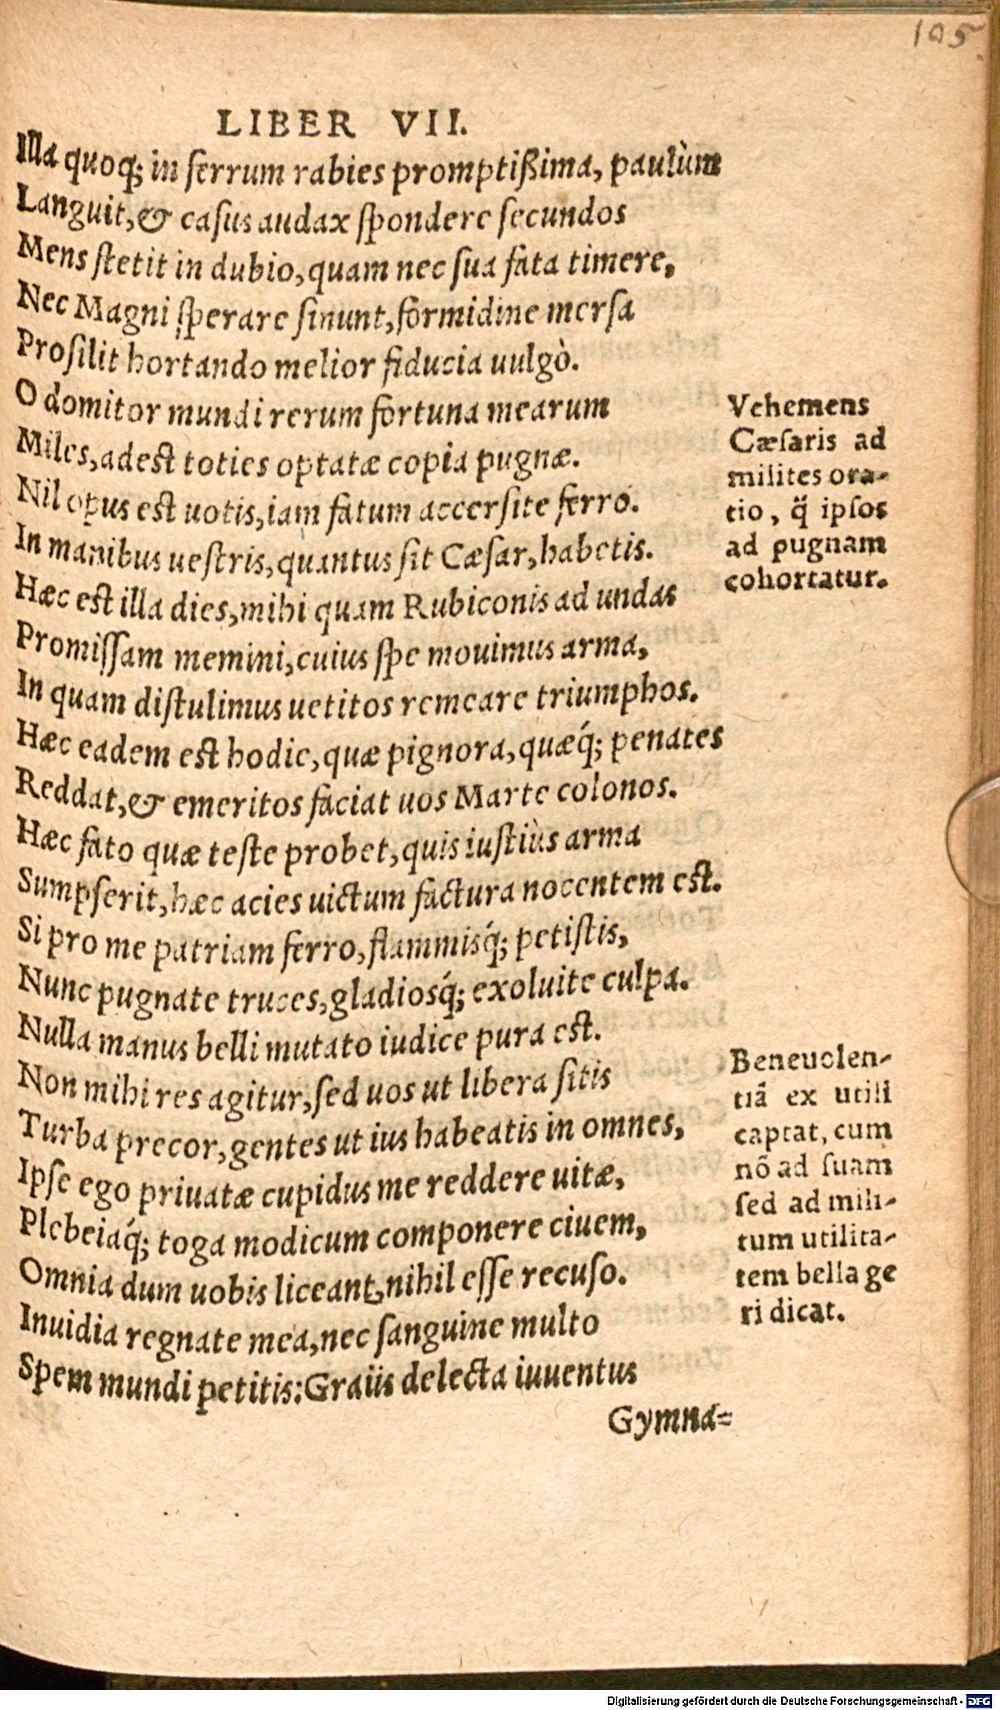 105
LIBER VII.
Illa quoq; in ferrum rabies promptißima, paulùm
Languit, & casus audax spondere secundos
Mens stetit in dubio, quam nec sua fata timere,
Nec Magni sperare sinunt, formidine mersa
Prosilit hortando melior fiducia uulgò.
O domitor mundi rerum fortuna mearum
Miles, adest toties optatæ copia pugnæ.
Nil opus est uotis, iam fatum accersite ferro.
In manibus uestris, quantus sit Cæsar, habetis.
Hæc est illa dies, mihi quam Rubiconis ad undas
Promissam memini, cuius spe mouimus arma,
In quam distulimus uetitos remeare triumphos.
Hæc eadem est hodie, quæ pignora, quæq́; penates
Reddat, & emeritos faciat uos Marte colonos.
Hæc fato quæ teste probet, quis iustiùs arma
Sumpserit, hæc acies uictum factura nocentem est.
Si pro me patriam ferro, flammisq́; petistis,
Nunc pugnate truces, gladiosq́; exoluite culpa.
Nulla manus belli mutato iudice pura est.
Non mihi res agitur, sed uos ut libera sitis
Turba precor, gentes ut ius habeatis in omnes,
Ipse ego priuatæ cupidus me reddere uitæ,
Plebeiaq́; toga modicum componere ciuem,
Omnia dum uobis liceant, nihil esse recuso.
Inuidia regnate mea, nec sanguine multo
Spem mundi petitis: Graiis delecta iuuentus
Gymna=
Vehemens
Cæsaris ad
milites ora-
tio, q̃ ipsos
ad pugnam
cohortatur.
Beneuolen-
tiã ex utili
captat, cum
nõ ad suam
sed ad mili-
tum utilita-
tem bella ge
ri dicat.
Digitalisierung gefördert durch die Deutsche Forschungsgemeinschaft - DFG